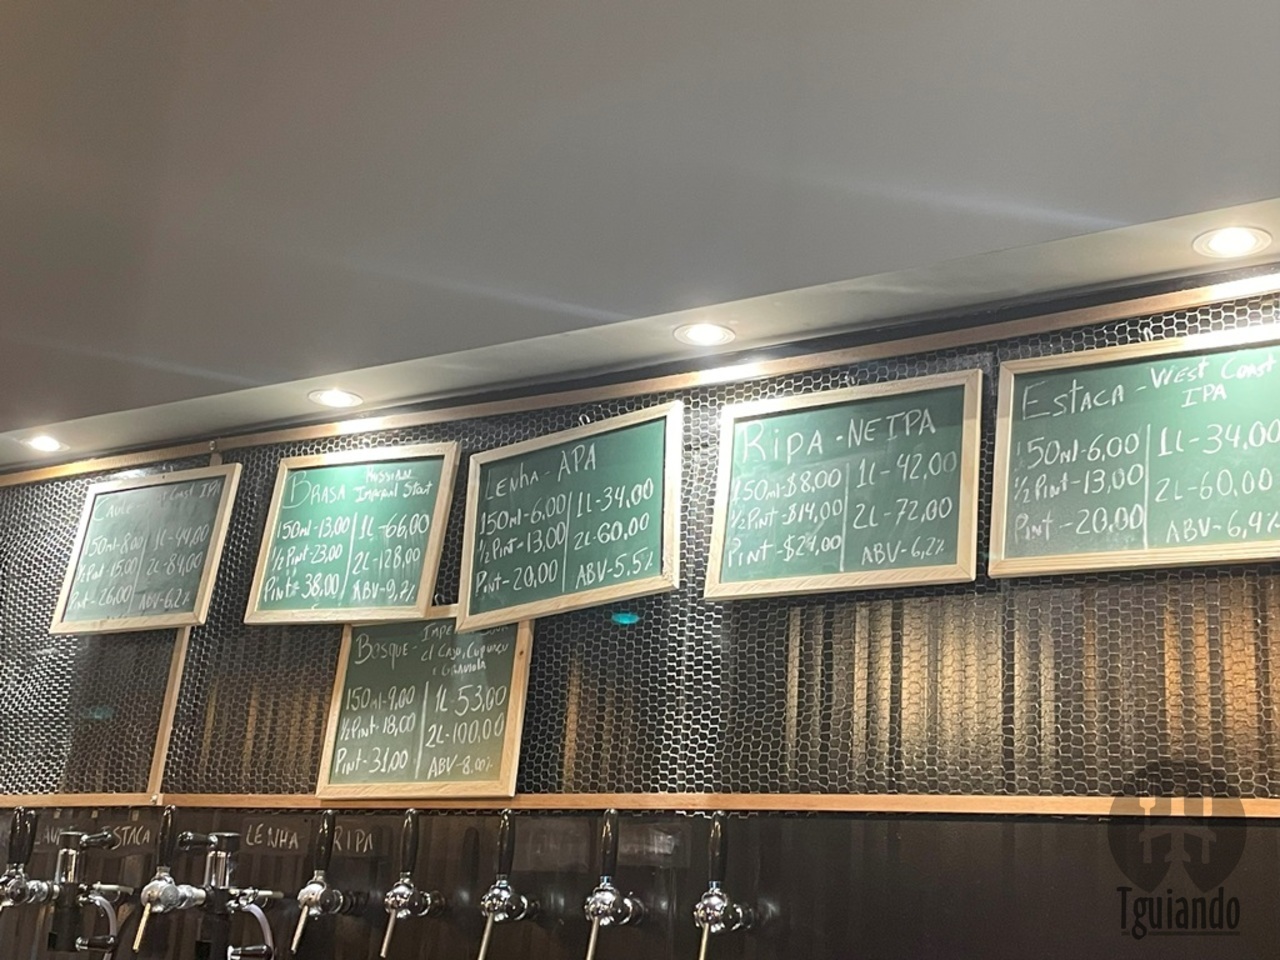 Caule
Coast IPA
150ml-8,00 | 1L-44,00
½ Pint-15,00 | 2L-84,00
Pint-26,00 | ABV-6,2%
Brasa
Russian
Imperial Stout
150ml-13,00 | 1L-66,00
½ Pint-23,00 | 2L-128,00
Pint-38,00 | ABV-9,7%
Lenha-APA
150ml-6,00 | 1L-34,00
½ Pint-13,00 | 2L-60,00
Pint-20,00 | ABV-5,5%
Ripa-NEIPA
150ml-$8,00 | 1L-42,00
½ Pint-$14,00 | 2L-72,00
Pint-$24,00 | ABV-6,2%
Estaca-West Coast
IPA
150ml-6,00 | 1L-34,00
½ Pint-13,00 | 2L-60,00
Pint-20,00 | ABV-6,4%
Bosque-
c/ Caju, Cupuaçu
e Graviola
150ml-9,00 | 1L-53,00
½ Pint-18,00 | 2L-100,00
Pint-31,00 | ABV-8,00%
LENHA RIPA
Tguiando